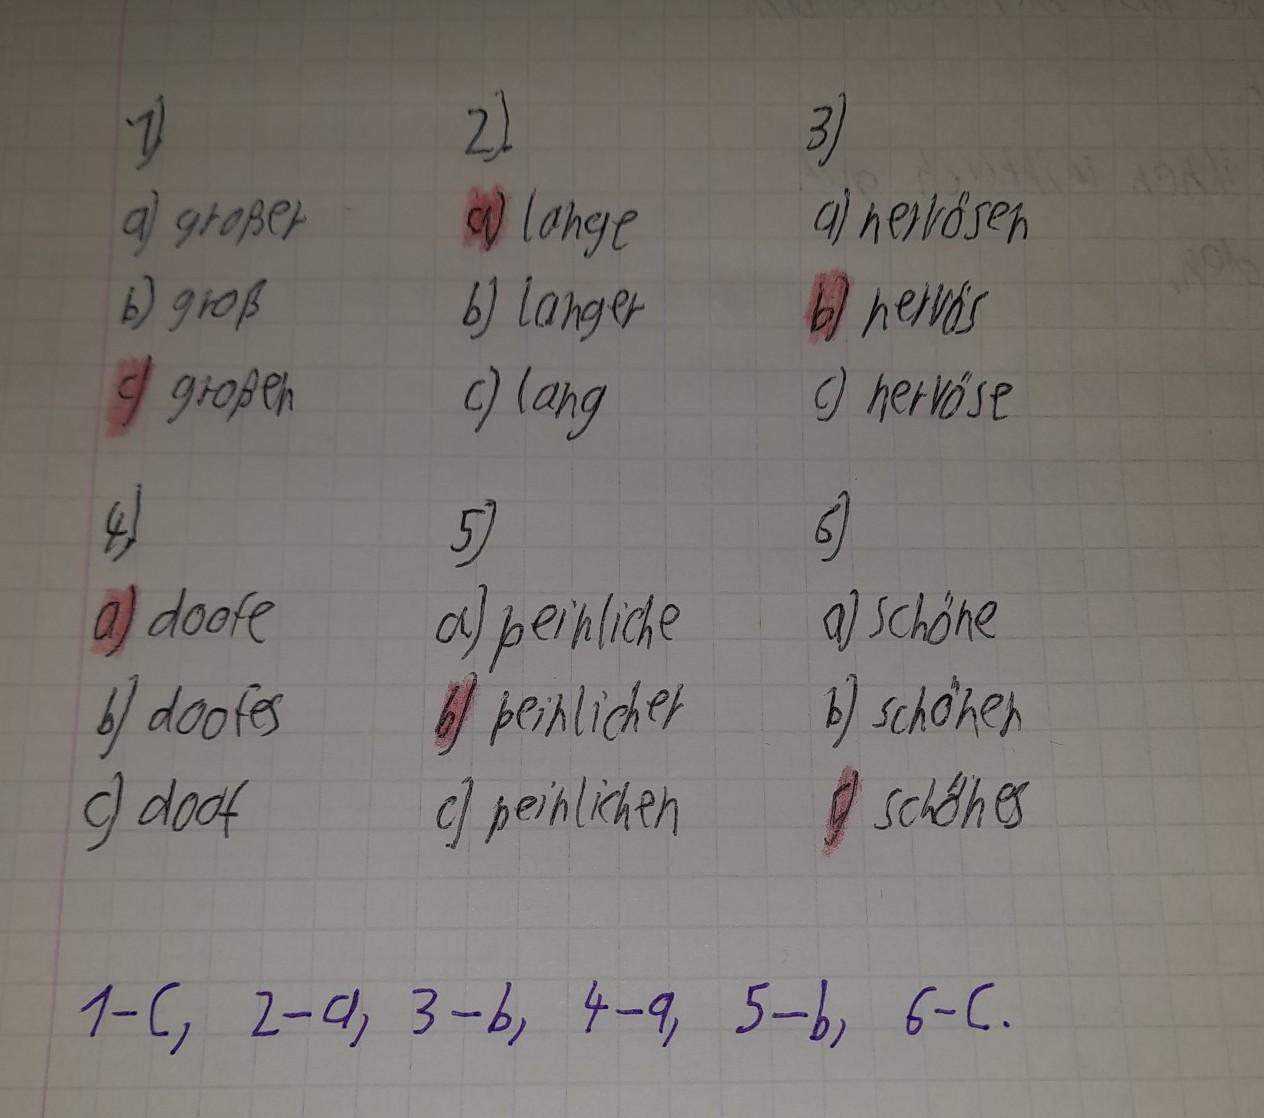 1) 2) 3)
a) großer a) lange a) nervösen
b) groß b) langer b) nervös
c) großen c) lang c) nervöse
4) 5) 6)
a) doofe a) peinliche a) schöne
b) doofes b) peinlicher b) schönen
c) doof c) peinlichen c) schönes
1-c, 2-a, 3-b, 4-a, 5-b, 6-c.